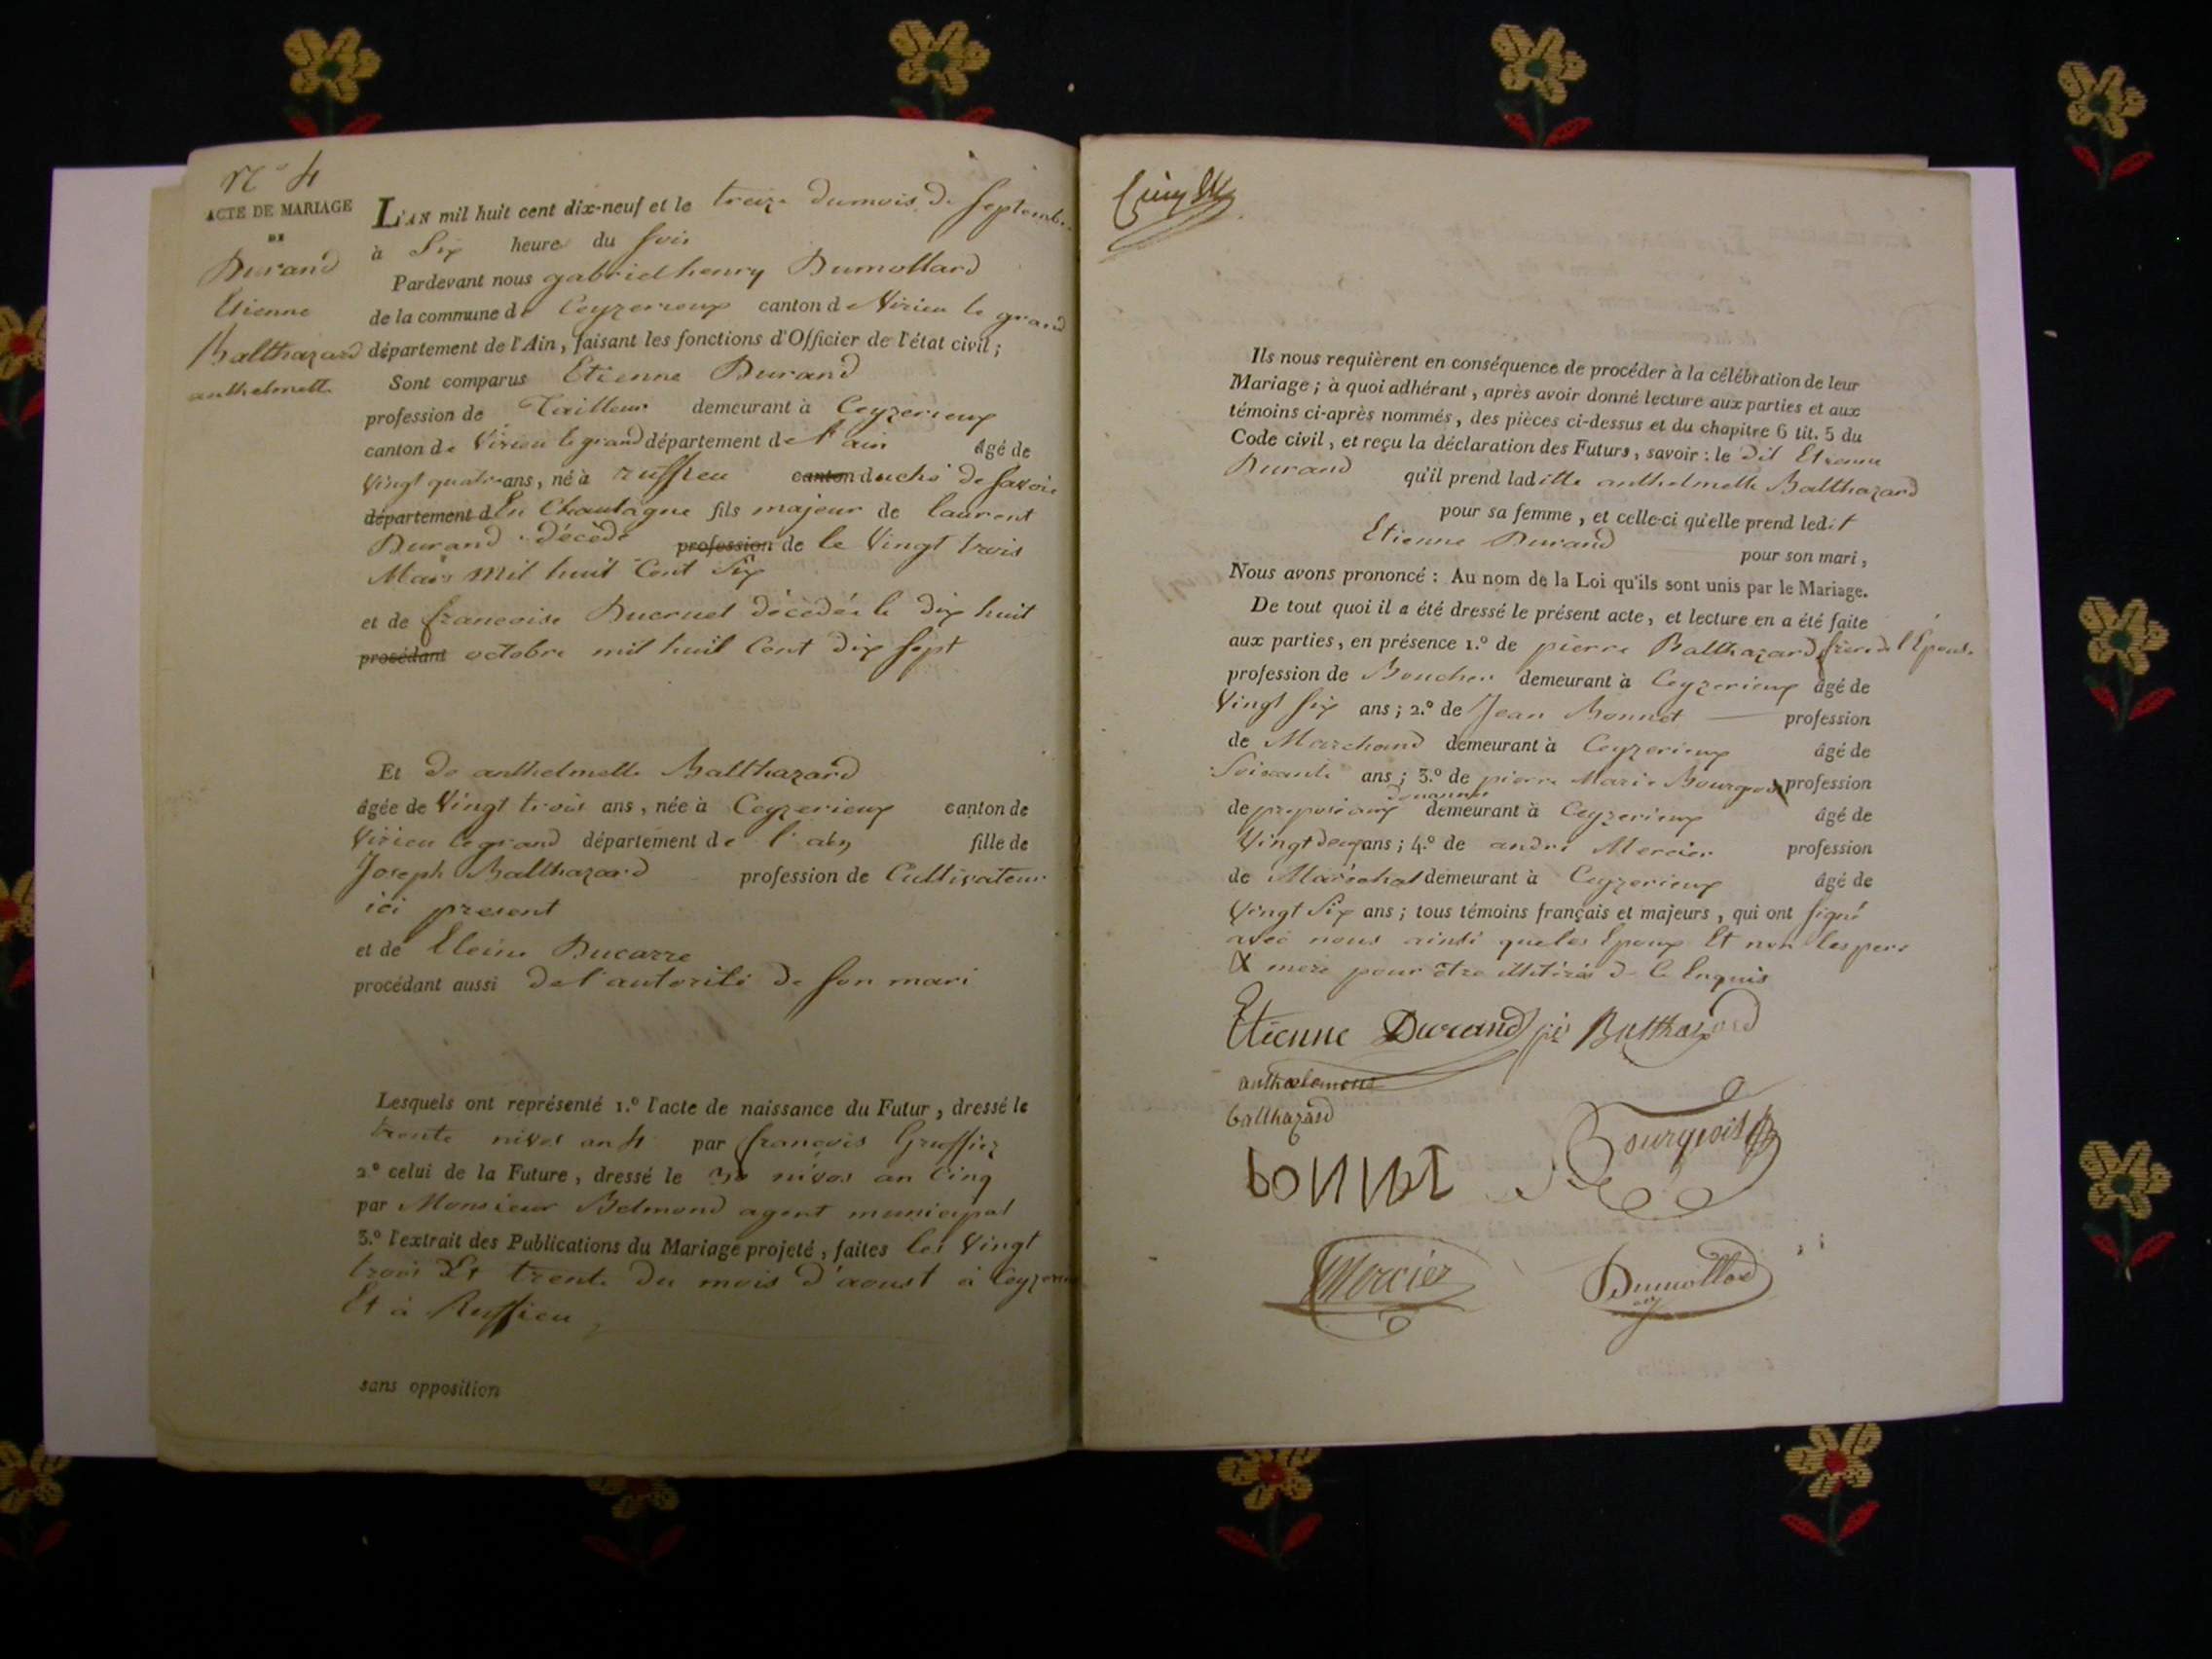 N.° 4
ACTE DE MARIAGE
DE
Durand
Etienne
Balthazard
anthelmette
L'AN mil huit cent dix-neuf et le treize du mois de Septembre
à Six heure du soir
Pardevant nous gabriel henry Dumollard
de la commune de Ceyzerieux canton de Virieu le grand
département de l'Ain, faisant les fonctions d'Officier de l'état civil;
Sont comparus Etienne Durand
profession de Tailleur demeurant à Ceyzerieux
canton de Virieu le grand département de l'ain âgé de
Vingt quatre ans, né à ruffieu canton duché de Savoie
département d En Chautagne fils majeur de laurent
Durand décédé profession de le Vingt trois
Mars mil huit Cent Six
et de francoise Ducruet décédée le dix huit
procédant octobre mil huit Cent dix sept
Et de anthelmette Balthazard
âgée de Vingt trois ans, née à Ceyzerieux canton de
Virieu le grand département de l'ain fille de
Joseph Balthazard profession de Cultivateur
ici present
et de Eleine Ducarre
procédant aussi de l'autorité de son mari
Lesquels ont représenté 1.° l'acte de naissance du Futur, dressé le
trente nivos an 4 par françois Gruffiez
2.° celui de la Future, dressé le 30 nivos an Cinq
par Monsieur Belmond agent municipal
3.° l'extrait des Publications du Mariage projeté, faites les Vingt
trois Et trente du mois d'aoust à Ceyzerieu
Et à Ruffieu
sans opposition
Cinq
Ils nous requièrent en conséquence de procéder à la célébration de leur
Mariage; à quoi adhérant, après avoir donné lecture aux parties et aux
témoins ci-après nommés, des pièces ci-dessus et du chapitre 6 tit. 5 du
Code civil, et reçu la déclaration des Futurs, savoir: le dit Etienne
Durand qu'il prend laditte anthelmette Balthazard
pour sa femme, et celle-ci qu'elle prend ledit
Etienne Durand pour son mari,
Nous avons prononcé: Au nom de la Loi qu'ils sont unis par le Mariage.
De tout quoi il a été dressé le présent acte, et lecture en a été faite
aux parties, en présence 1.° de pierre Balthazard frere de l'Epouse
profession de Boucher demeurant à Ceyzerieux âgé de
Vingt six ans; 2.° de Jean Bonnet profession
de Marchand demeurant à Ceyzerieux âgé de
Soixante ans; 3.° de pierre Marie Bourgeois profession
de preposé aux douannes demeurant à Ceyzerieux âgé de
Vingt deux ans; 4.° de andré Mercier profession
de Maréchal demeurant à Ceyzerieux âgé de
Vingt Six ans; tous témoins français et majeurs, qui ont signé
avec nous ainsi que les Epoux Et non les pere
& mere pour être illitérés de ce Enquis
Etienne Durand pi Balthazard
anthelemette
balthazard
bonnet
Bourgeois
Mercier
Dumollard